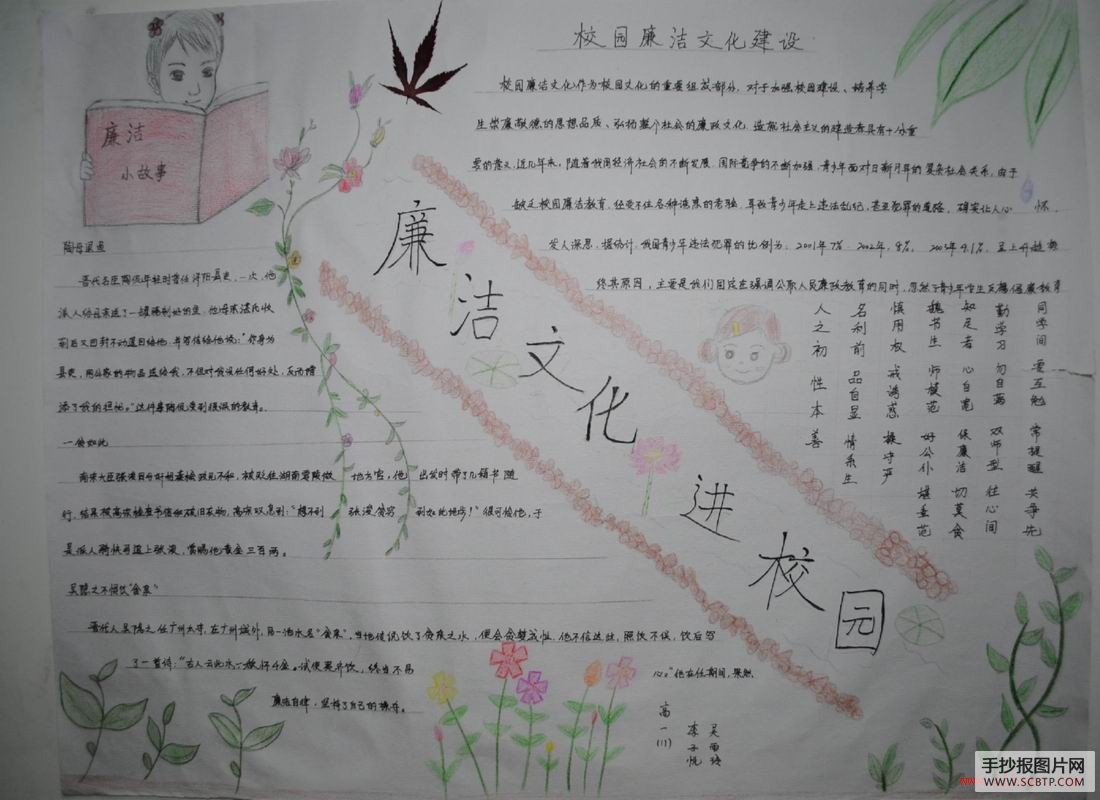 廉洁
小故事
校园廉洁文化建设
校园廉洁文化作为校园文化的重要组成部分，对于加强校园建设、培养学
生崇廉敬德的思想品质、弘扬整个社会的廉政文化、造就社会主义的建造者具有十分重
要的意义.近几年来，随着我国经济社会的不断发展，国际竞争的不断加强，青少年面对日新月异的复杂社会关系，由于
缺乏校园廉洁教育，经受不住各种诱惑的考验，导致青少年走上违法乱纪，甚至犯罪的道路，确实让人心 怀，
发人深思，据统计，我国青少年违法犯罪的比例为：2001年7% 2002年，8%， 2003年9.1%，呈上升趋势
终其原因，主要是我们国家在强调公职人员廉政教育的同时，忽然了青少年学生反腐倡廉教育
同学间 要互勉 常提醒 共争先
勤学习 勿自满 双师型 住心间
知足者 心自宽 保廉洁 切莫贪
教书生 师模范 好公仆 堪垂范
慎用权 戒诱惑 操守严
名利前 品自显 情系生
人之初 性本善
廉洁文化进校园
陶母退鱼
晋代名臣陶侃年轻时曾任浔阳县吏，一次，他
派人给母亲送了一罐腌制好的鱼，他母亲湛氏收
到后又原封不动退回给他，并写信给他说："你身为
县吏，用公家的物品送给我，不但对我没任何好处，反而增
添了我的担忧。"这件事陶侃受到很深的教育。
一贫如此
南宋大臣张浚因与奸相秦桧政见不和，被贬往湖南零陵做 地方官，他 出发时带了几箱书随
行，结果被高宗 书信和破旧衣物，高宗叹息到："想不到 张浚贫穷 到如此地步！"很可怜他，于
是派人骑快马追上张浚，赏赐他黄金三百两。
吴隐之不惧饮"贪泉"
晋代人吴隐之任广州太守，在广州城外，见一池水名"贪泉"，当地传说饮了贪泉之水，便会贪婪成性，他不信这些，照饮不误，饮后写
了一首诗："古人云此水，一歃怀千金。试使夷齐饮，终当不易 心。"他在任期间，果然
廉洁自律，坚持了自己的操守。
高一(1)
吴雨
李子悦
手抄报图片网
WWW.SCBTP.COM